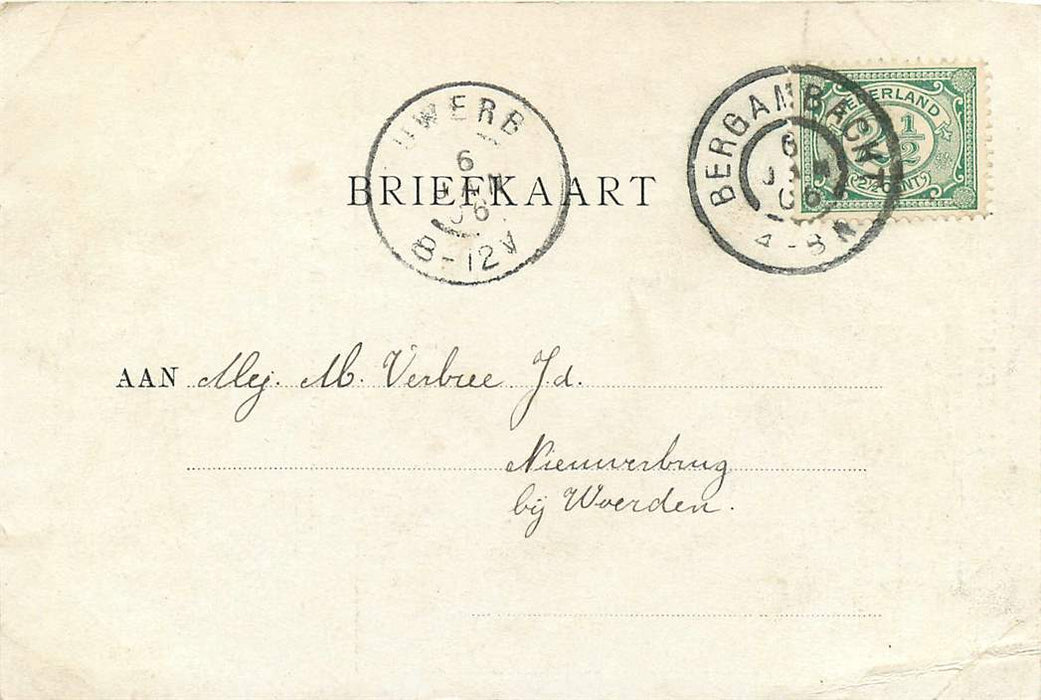 UWERB
6
JAN
06
8-12V
BERGAMBACHT
6
JAN
06
4-8N
NEDERLAND
2½
(2½CENT)
BRIEFKAART
AAN Mej. M. Verbree Jd.
Nieuwerbrug
bij Woerden.